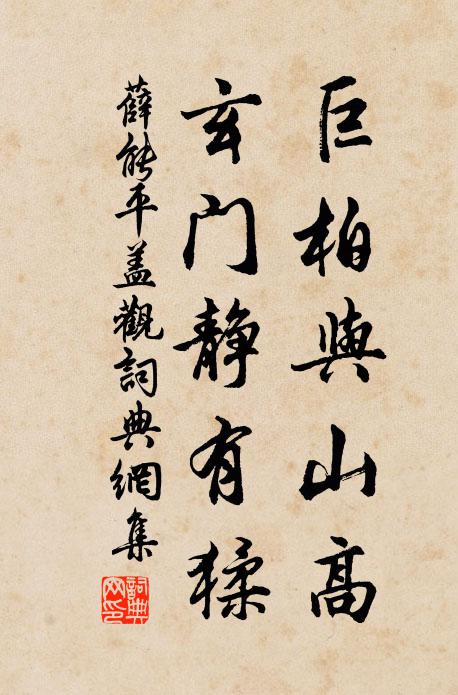 巨柏與山高
玄門静有猱
薛能平蓋觀詞典網集
詞典網印